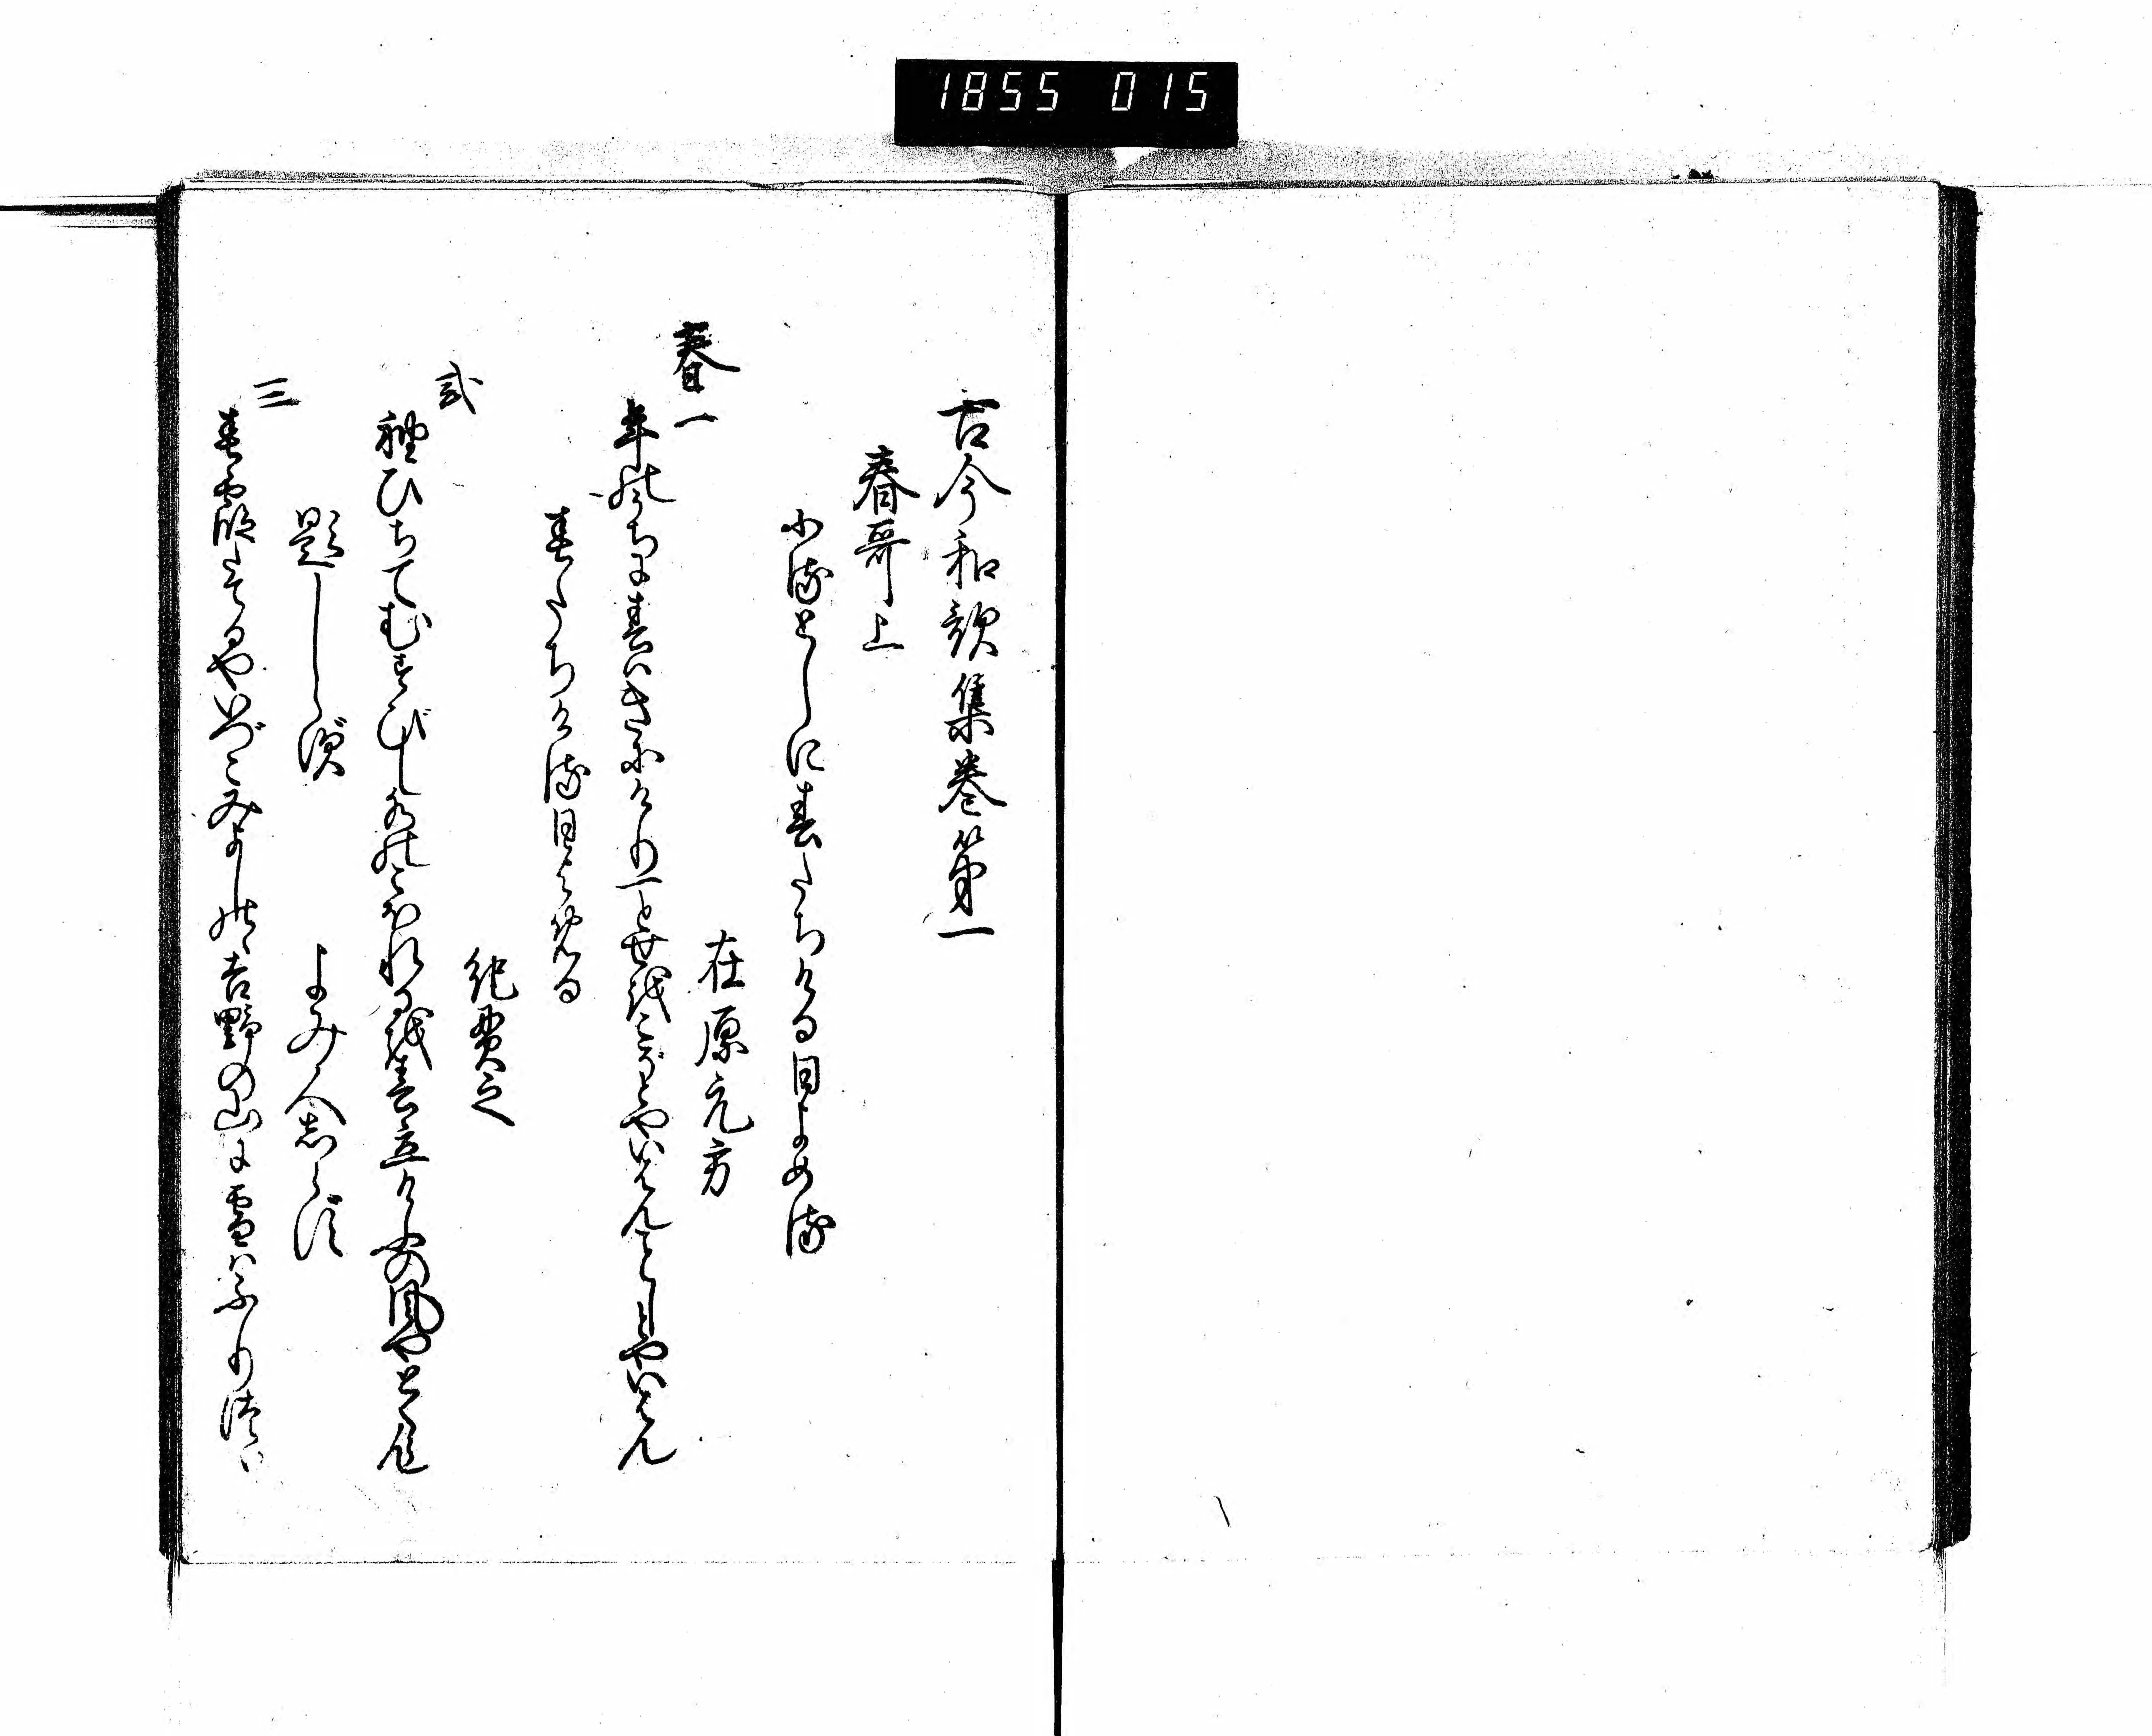 1855 015
古今和歌集巻第一
春哥上
ふるとしに春たちける日よめる
在原元方
春一
年のうちに春はきにけり一とせをこぞとやいはんことしとやいはん
春たちける日よめる
紀貫之
弐
袖ひちてむすびし水のこほれるを春立けふの風やとくらん
題しらず
よみ人しらず
三
春霞たてるやいづこみよしのの吉野の山に雪はふりつゝ